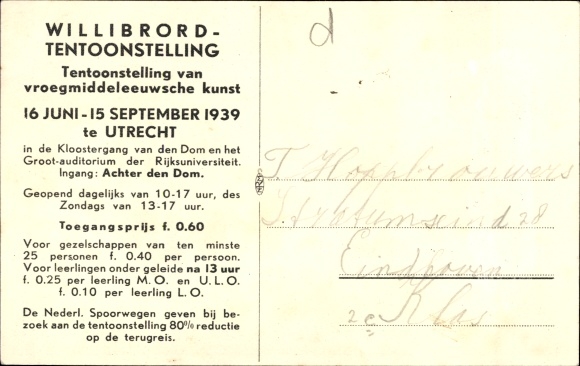 WILLIBRORD-
TENTOONSTELLING
Tentoonstelling van
vroegmiddeleeuwsche kunst
16 JUNI - 15 SEPTEMBER 1939
te UTRECHT
in de Kloostergang van den Dom en het
Groot-auditorium der Rijksuniversiteit.
Ingang: Achter den Dom.
Geopend dagelijks van 10-17 uur, des
Zondags van 13-17 uur.
Toegangsprijs f. 0.60
Voor gezelschappen van ten minste
25 personen f. 0.40 per persoon.
Voor leerlingen onder geleide na 13 uur
f. 0.25 per leerling M. O. en U. L. O.
f. 0.10 per leerling L. O.
De Nederl. Spoorwegen geven bij be-
zoek aan de tentoonstelling 80% reductie
op de terugreis.
d
T. Hoppbrouwers
Stratumseind 28
Eindhoven
2e Klas